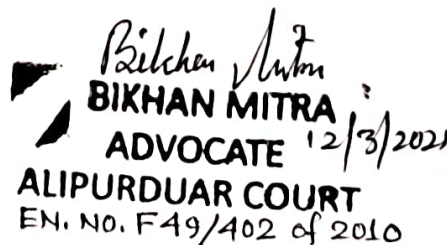 Bikhan Mitra
BIKHAN MITRA
ADVOCATE 12/3/2021
ALIPURDUAR COURT
EN. NO. F49/402 of 2010